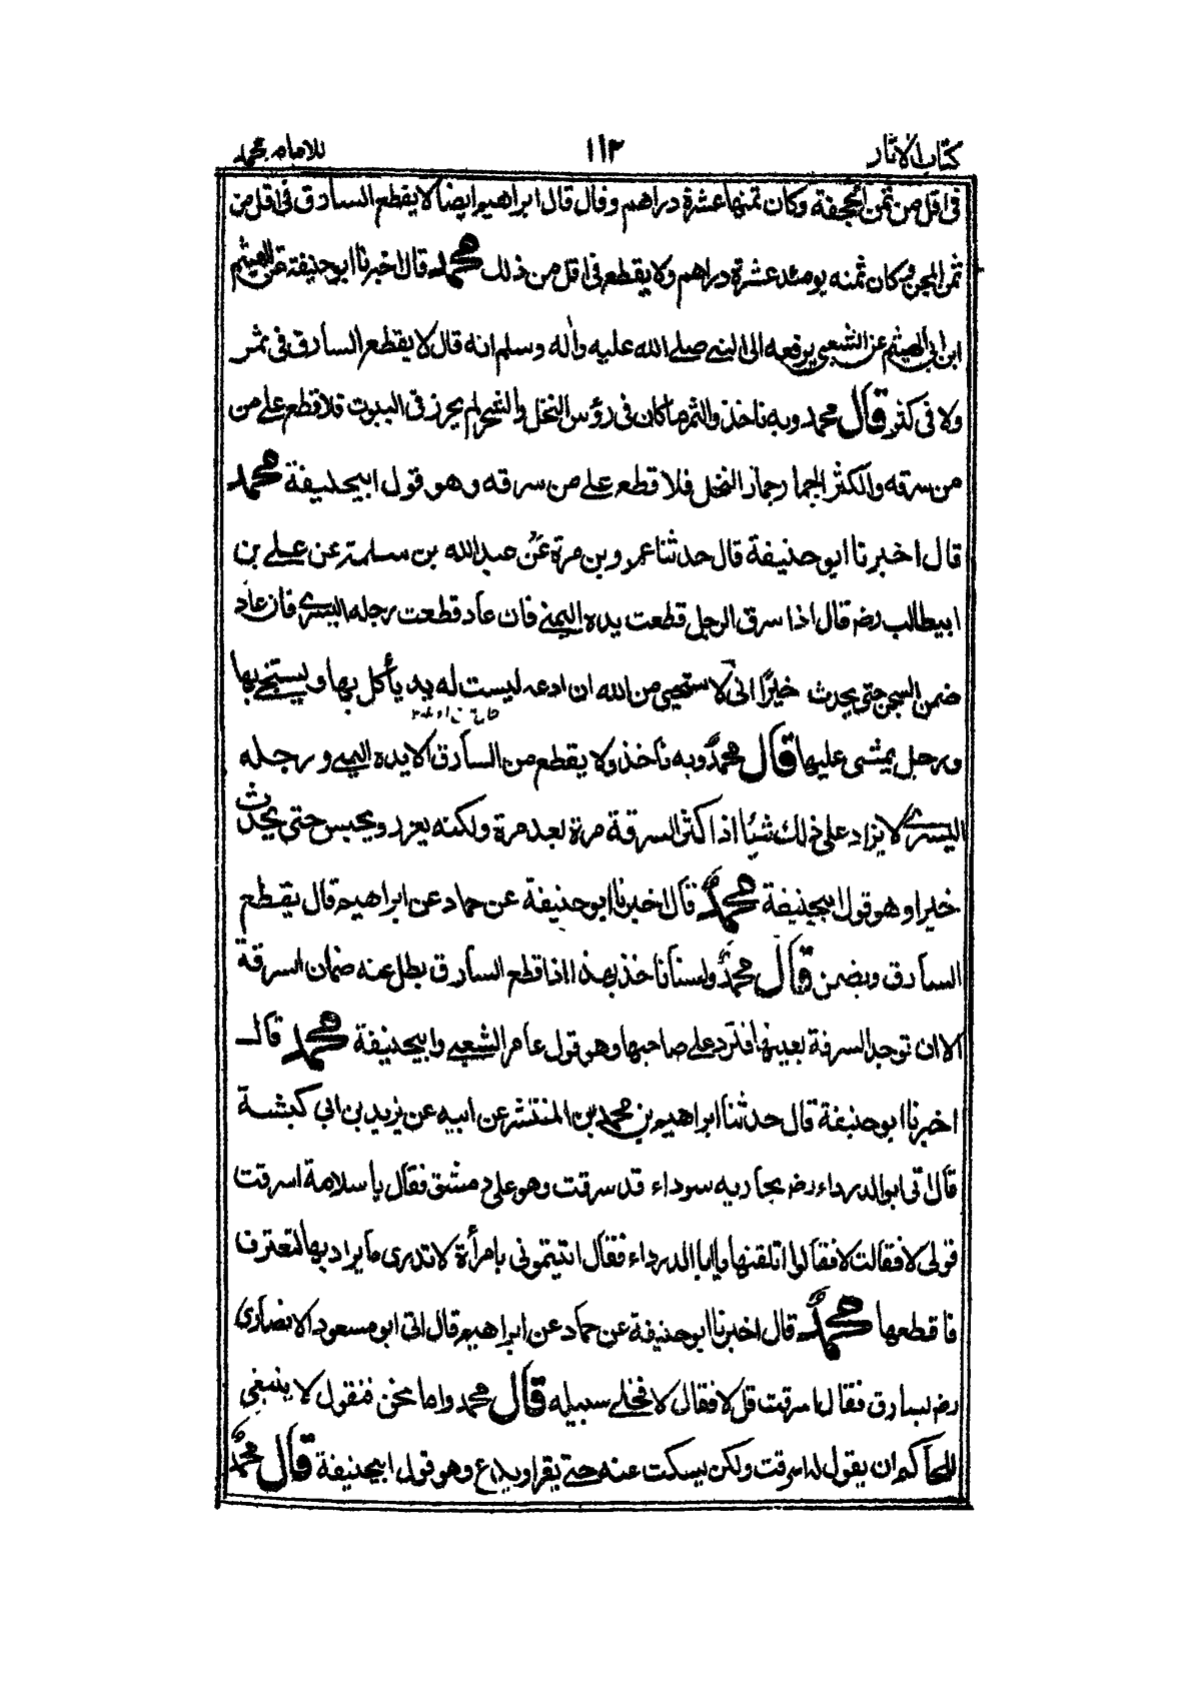 كتاب الاثار ١١٣ للامام محمد
فى اقل من ثمن الحجفة وكان ثمنها عشرة دراهم وقال قال ابراهيم ايضا لا يقطع السارق فى اقل من
ثمن المجن وكان ثمنه يومئذ عشرة دراهم ولا يقطع فى اقل من ذلك محمد قال اخبرنا ابو حنيفة عن الهيثم
ابن ابى الهيثم عن الشعبى يرفعه الى النبى صلى الله عليه واله وسلم انه قال لا يقطع السارق فى ثمر
ولا فى كثر قال محمد وبه ناخذ والثمر ما كان فى رؤس النخل والشجر لم يحرز فى البيوت فلا قطع على من
من سرقه والكثر الجمار جمار النخل فلا قطع على من سرقه وهو قول ابيحنيفة محمد
قال اخبرنا ابو حنيفة قال حدثنا عمرو بن مرة عن عبد الله بن سلمة عن على بن
ابيطالب رضـ قال اذا سرق الرجل قطعت يده اليمنى فان عاد قطعت رجله اليسرى فان عاد
ضمن السجن حتى يحدث خيرًا انى لا ستحيى من الله ان ادعه ليست له يد يأكل بها ويستنجى بها
ورجل يمشى عليها قال محمد وبه ناخذ ولا يقطع من السارق الا يده اليمنى ورجله
اليسرى لا يزاد على ذلك شيئا اذا كثر السرقة مرة بعد مرة ولكنه يعزر ويحبس حتى يحدث
خيرا وهو قول ابيحنيفة محمد قال اخبرنا ابو حنيفة عن حماد عن ابراهيم قال يقطع
السارق ويضمن قال محمد ولسنا ناخذ بهذا اذا قطع السارق بطل عنه ضمان السرقة
الا ان توجد السرقة بعينها فترد على صاحبها وهو قول عامر الشعبى وابيحنيفة محمد قال
اخبرنا ابو حنيفة قال حدثنا ابراهيم بن محمد بن المنتشر عن ابيه عن يزيد بن ابى كبشة
قال اتى ابو الدرداء رضـ بجارية سوداء قد سرقت وهو على دمشق فقال يا سلامة اسرقت
قولى لا فقالت لا فقالوا اتلقنها يا ابا الدرداء فقال اتيتمونى بامرأة لا تدرى ما يراد بها لتعترف
فاقطعها محمد قال اخبرنا ابو حنيفة عن حماد عن ابراهيم قال اتى ابو مسعود الانصارى
رضـ بسارق فقال اسرقت قل لا فقال لا فخلى سبيله قال محمد واما نحن فنقول لا ينبغى
للحاكم ان يقول له اسرقت ولكن يسكت عنه حتى يقر او يدع وهو قول ابيحنيفة قال محمد